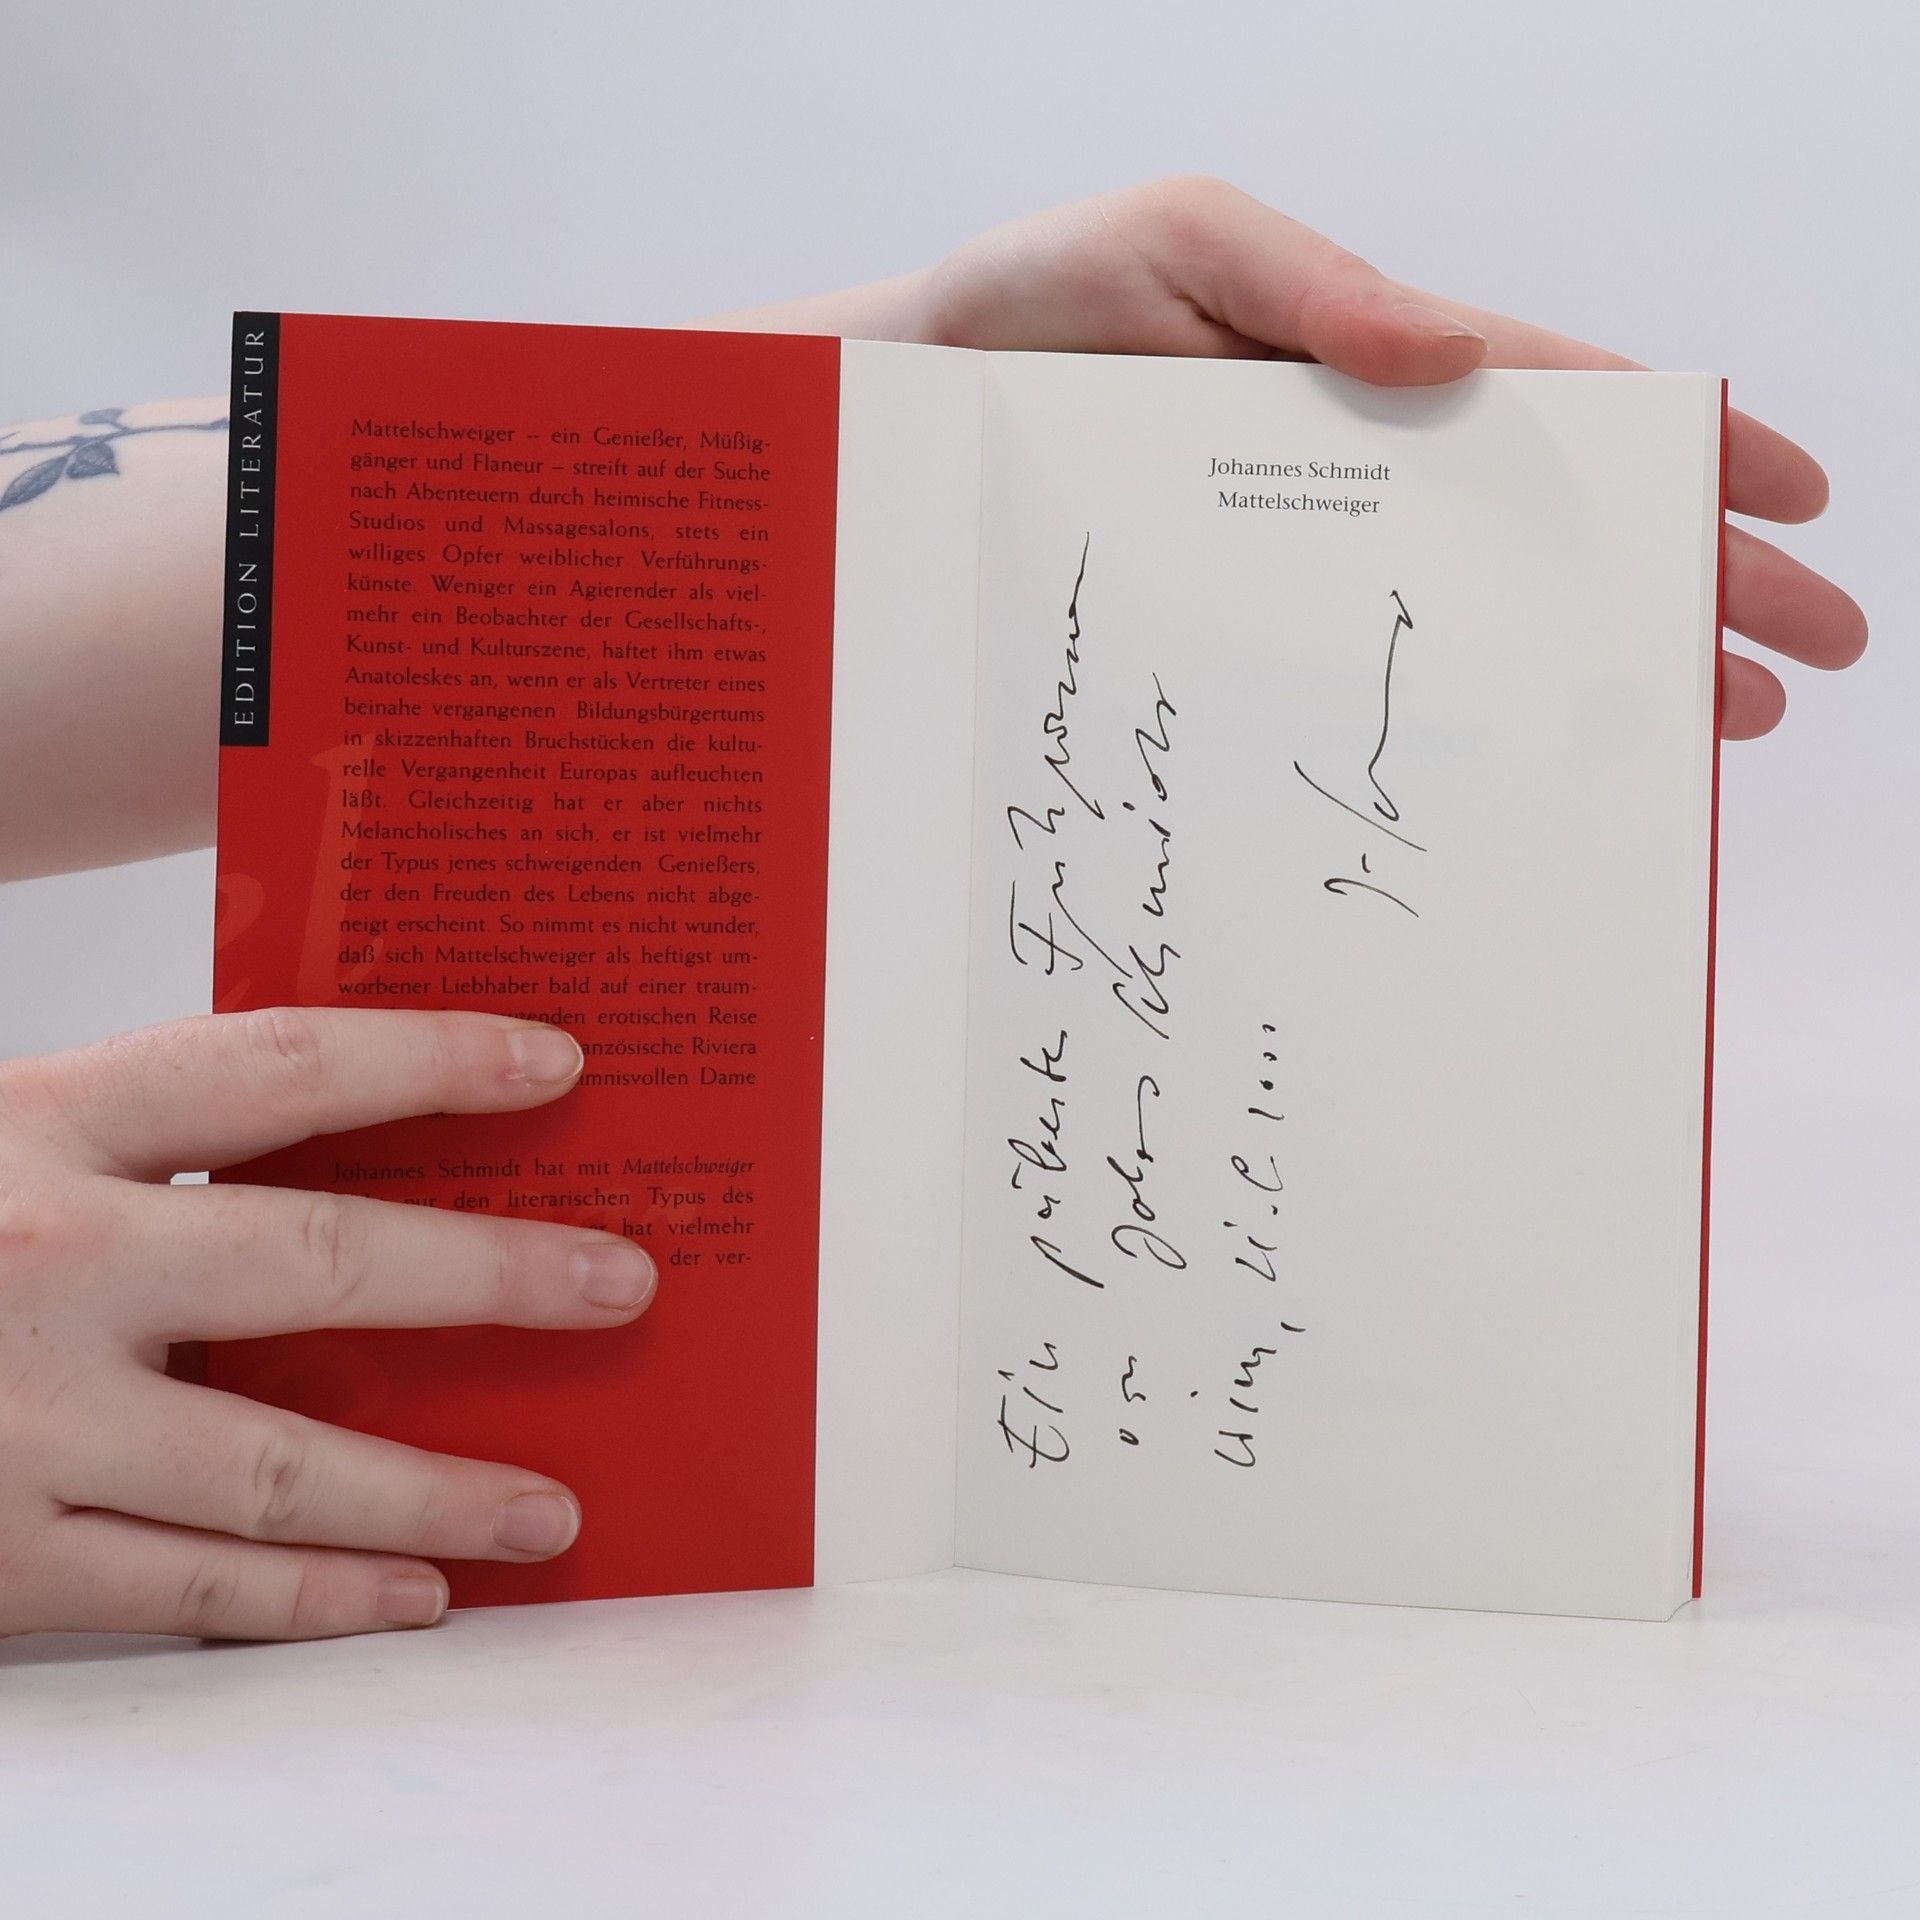 EDITION LITERATUR
Mattelschweiger – ein Genießer, Müßig-
gänger und Flaneur – streift auf der Suche
nach Abenteuern durch heimische Fitness-
Studios und Massagesalons, stets ein
williges Opfer weiblicher Verführungs-
künste. Weniger ein Agierender als viel-
mehr ein Beobachter der Gesellschafts-,
Kunst- und Kulturszene, haftet ihm etwas
Anatoleskes an, wenn er als Vertreter eines
beinahe vergangenen Bildungsbürgertums
in skizzenhaften Bruchstücken die kultu-
relle Vergangenheit Europas aufleuchten
läßt. Gleichzeitig hat er aber nichts
Melancholisches an sich, er ist vielmehr
der Typus jenes schweigenden Genießers,
der den Freuden des Lebens nicht abge-
neigt erscheint. So nimmt es nicht wunder,
daß sich Mattelschweiger als heftigst um-
worbener Liebhaber bald auf einer traum-
erotischen Reise
Riviera
Dame
Johannes Schmidt hat mit Mattelschweiger
nur den literarischen Typus des
hat vielmehr
der ver-
Johannes Schmidt
Mattelschweiger
Ein
von Johannes Schmidt
Wien,